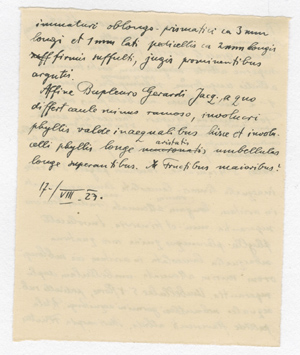 immaturi oblongo-prismatici ca 3 mm
longi et 1 mm lati pedicellis ca 2 mm longis
firmis suffulti, jugis prominentibus
argutis.
Affine Bupleuro Gerardi Jacq., a quo
differt caule minus ramoso, involucri
phyllis valde inaequalibus hisce et involu
celli phyllis longe aristatis umbellulas
longe superantibus. Fructibus maioribus?
17./VIII. 23.